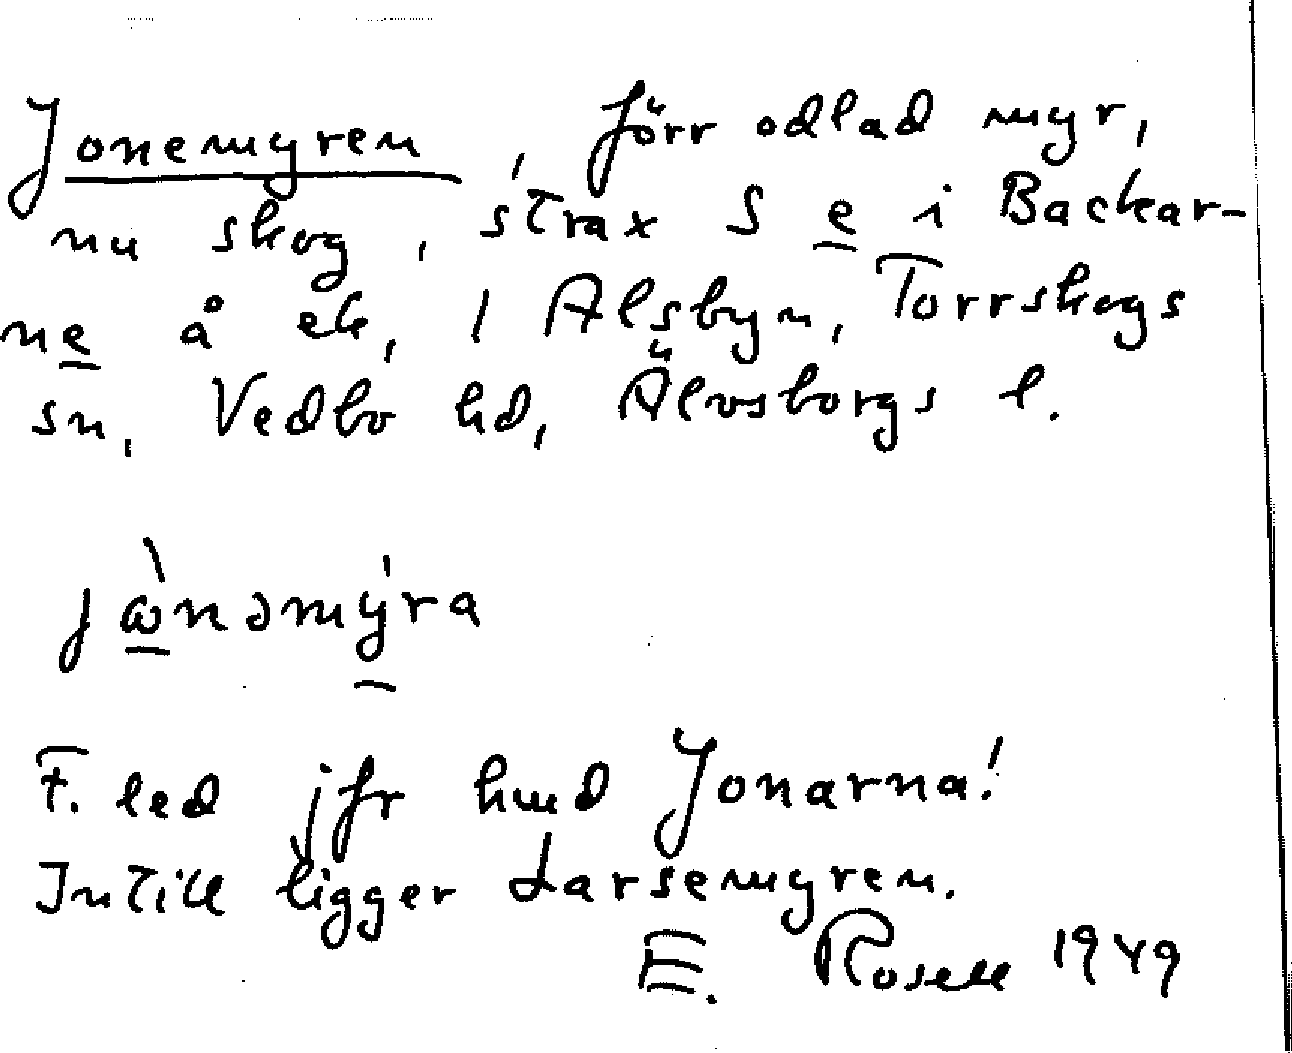 Jonemyren, förr odlad myr,
nu skog, strax S e i Backar-
ne å ek, i Älsbyn, Torrskogs
sn, Vedbo hd, Älvsborgs l.
jὼnəmýra
F. led jfr hmd Jonarna!
Intill ligger Larsemyren.
E. Rosell 1949